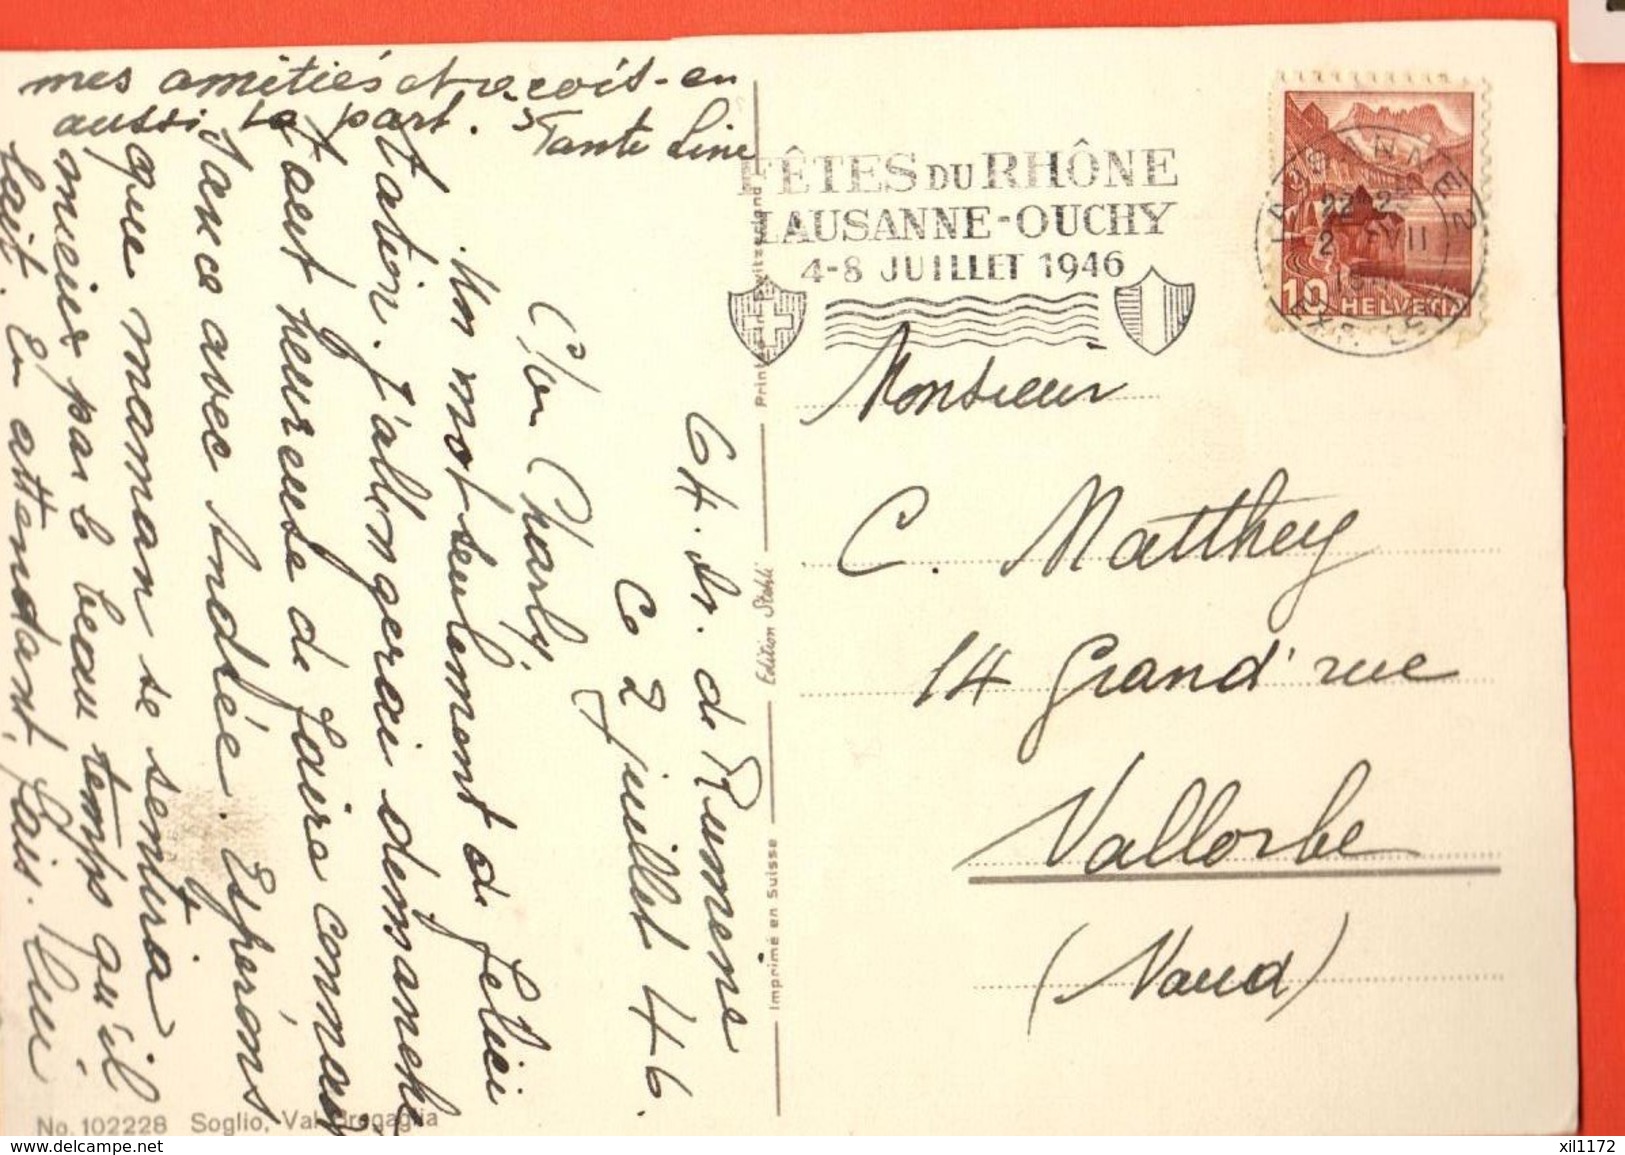 64. Av. de Rumene
Ce 2 juillet 46.
Mon Charly
Un mot seulement de félici
tation. J'allongerai dimanche
tant heureuse de faire connais
sance avec Andrée. Espérons
que maman se sentira
mieux par le beau temps qu'il
fait. En attendant, fais-lui
mes amitiés et reçois-en
aussi ta part.
Tante Line
FÊTES DU RHÔNE
LAUSANNE-OUCHY
4-8 JUILLET 1946
LAUSANNE 2
EXP. LET
HELVETIA
10
Monsieur
C. Matthey
14 Grand' rue
Vallorbe
(Vaud)
Imprimé en Suisse
Edition Stehli
Printed in Switzerland
No. 102228 Soglio, Val Bregaglia
delcampe.net
xil1172